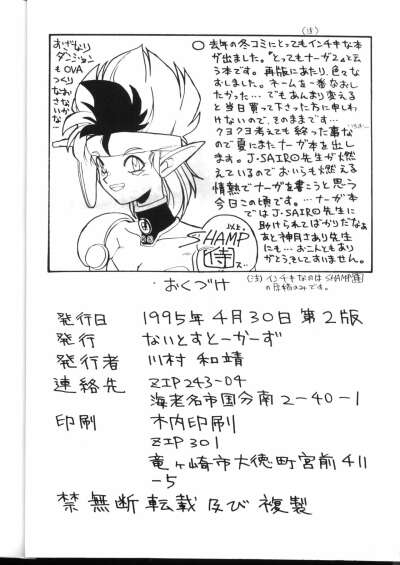 (注)
○去年の冬コミにとってもインチキな本
が出ました。"とってもナーガ2"と云
う本です。再版にあたり、色々な
おしました。ネームを一番なおし
たかった…でもあんまり変える
と当日買って下さった方に申しわ
けないので、そのままです…
クヨクヨ考えても終った事な
ので夏にまたナーガ本を出し
ます。J・SAIRO先生が燃
えているのでおいらも燃える
情熱でナーガを書こうと思う
今日この頃です。…ナーガ本
ではJ・SAIRO先生に
助けられてばかりだなぁ
あと神月さあり先生
にも…お二人ともあり
がとうそしてすいません。
おざなり
ダンジョン
もOVA
つくり
なおさ
ないかな…
SHAMP
侍
(注)インチキなのはSHAMP侍
の原稿のみです。
おくづけ
発行日 1995年4月30日第2版
発行 ないとすとーかーず
発行者 川村 和靖
連絡先 ZIP243-04
海老名市国分南2-40-1
印刷 木内印刷
ZIP301
竜ヶ崎市大徳町宮前411
-5
禁無断転載及び複製